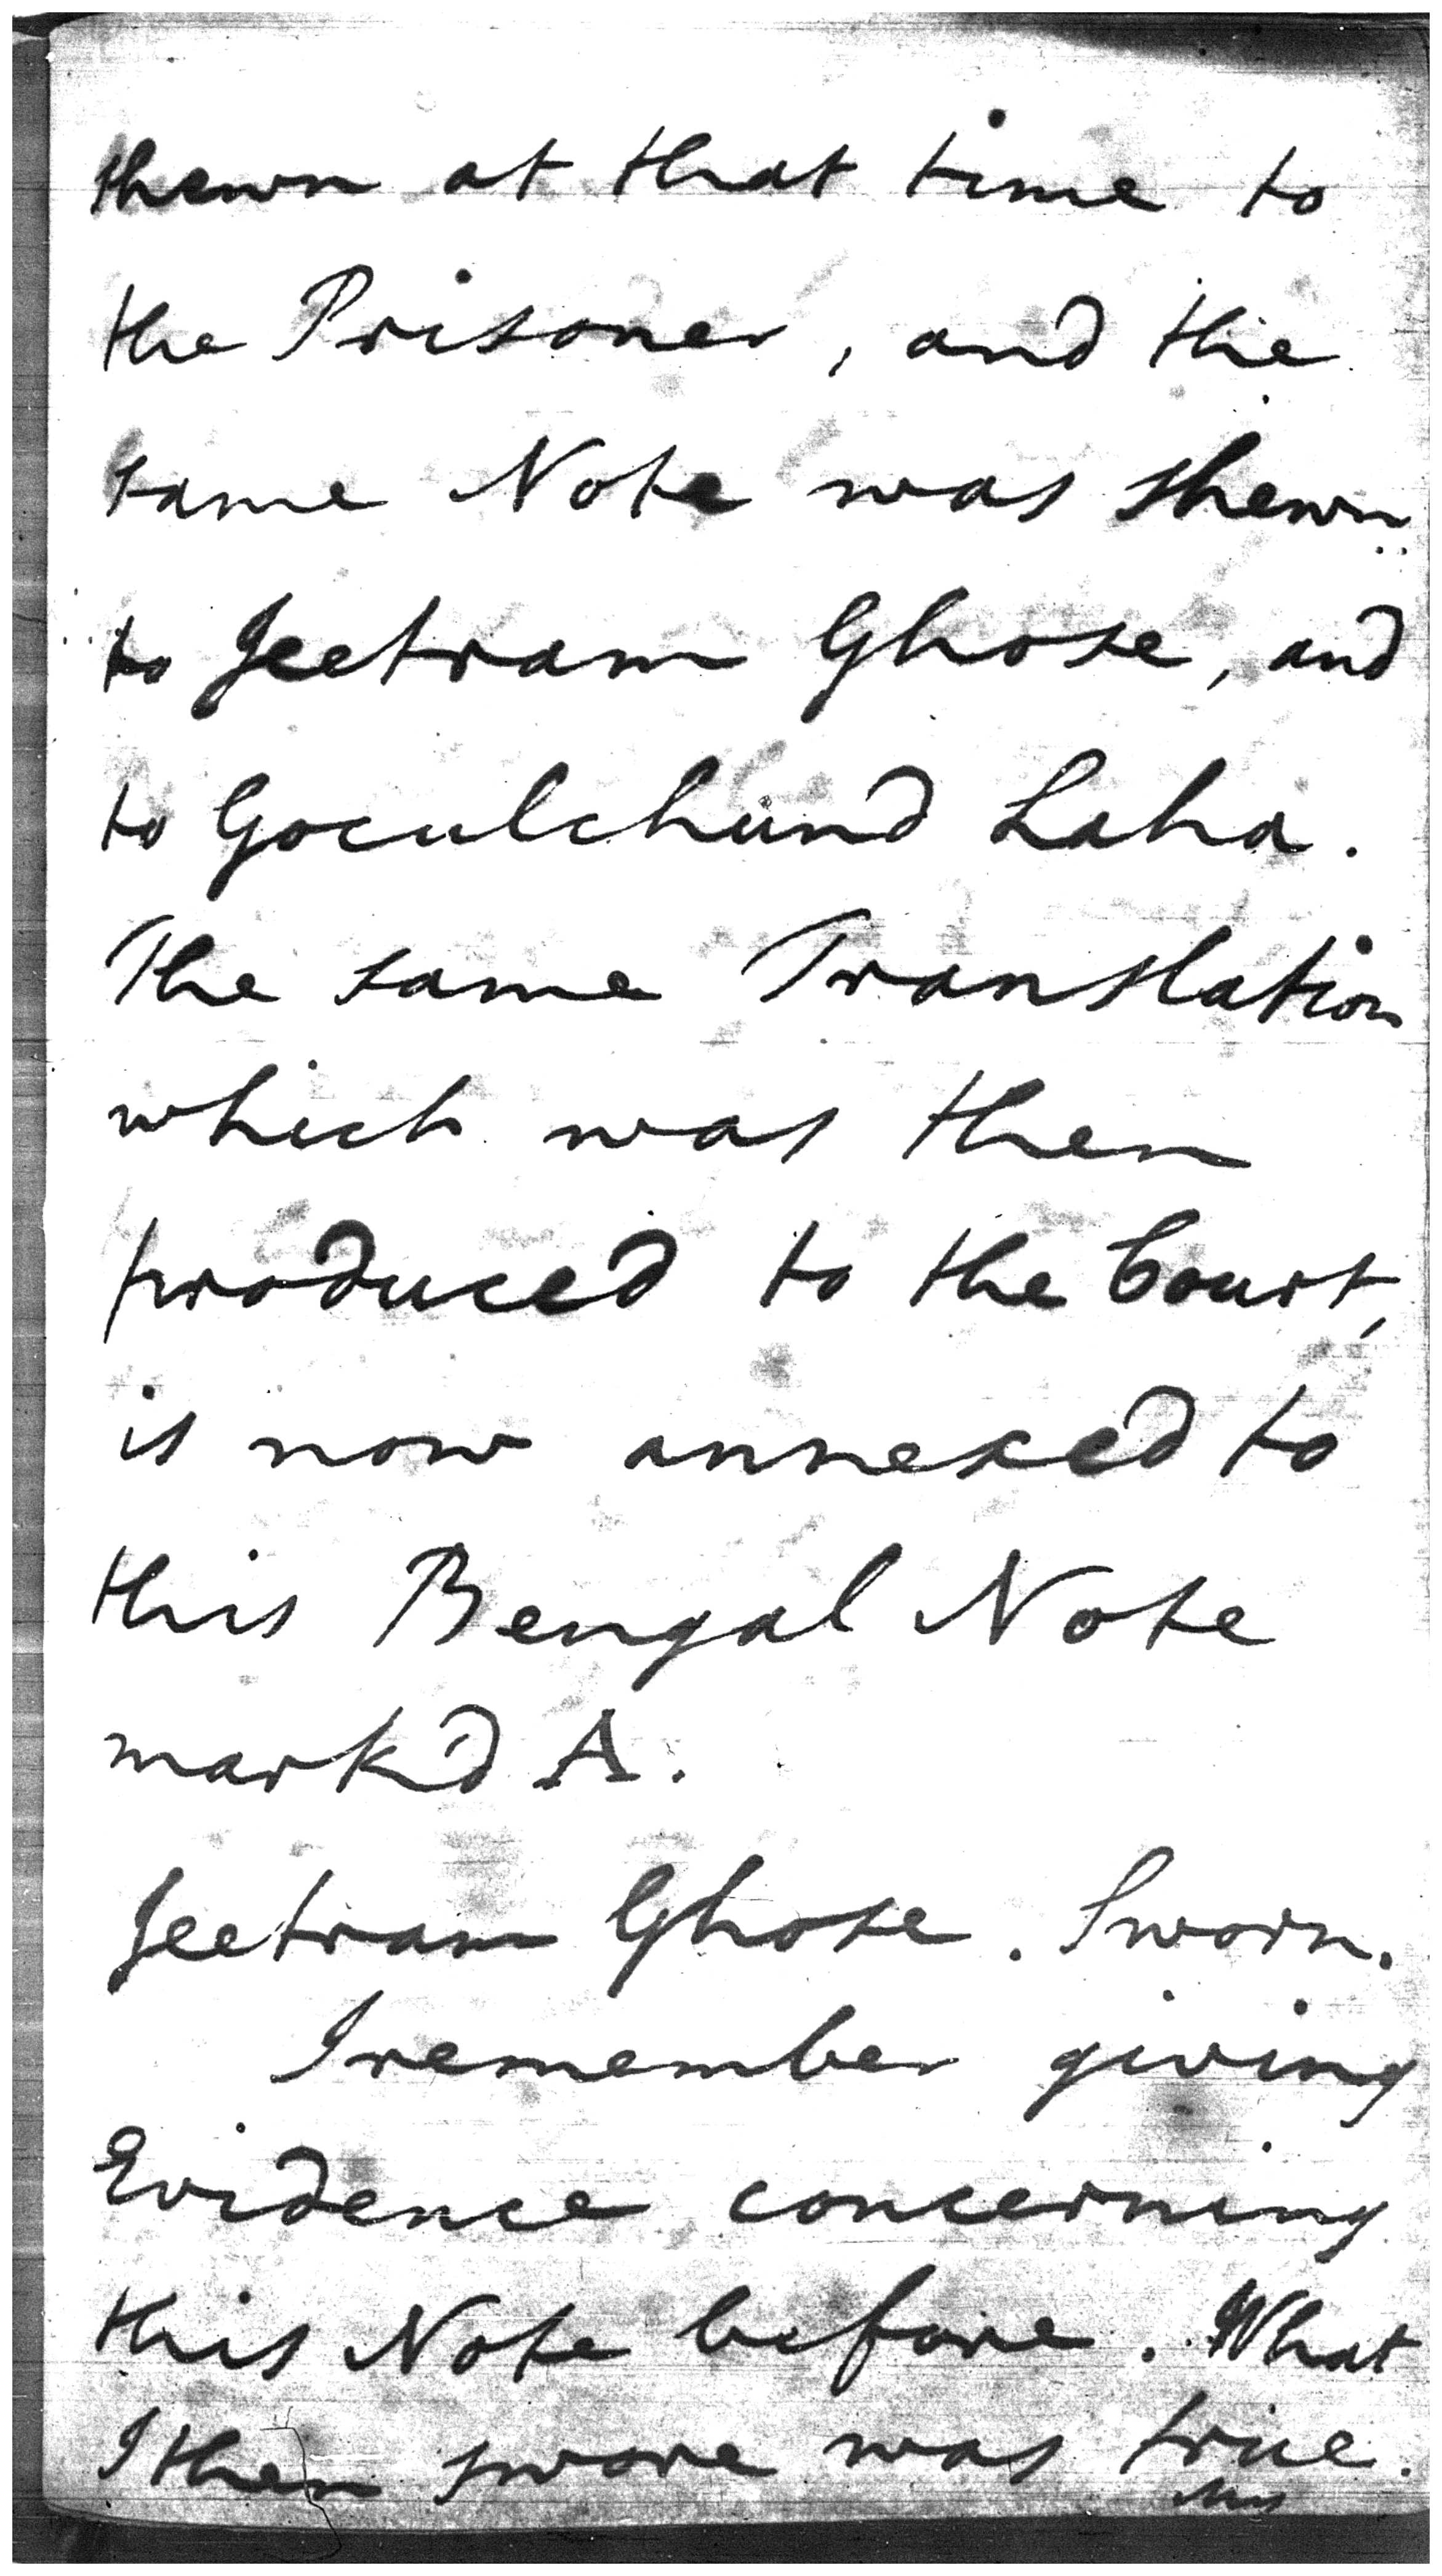 shewn at that time to
the Prisoner, and the
same Note was shewn
to Jeetram Ghose, and
to Goculchund Laha.
The same Translation
which was then
produced to the Court,
is now annexed to
this Bengal Note
mark'd A.
Jeetram Ghose. Sworn.
I remember giving
Evidence concerning
this Note before. What
I then swore was true.